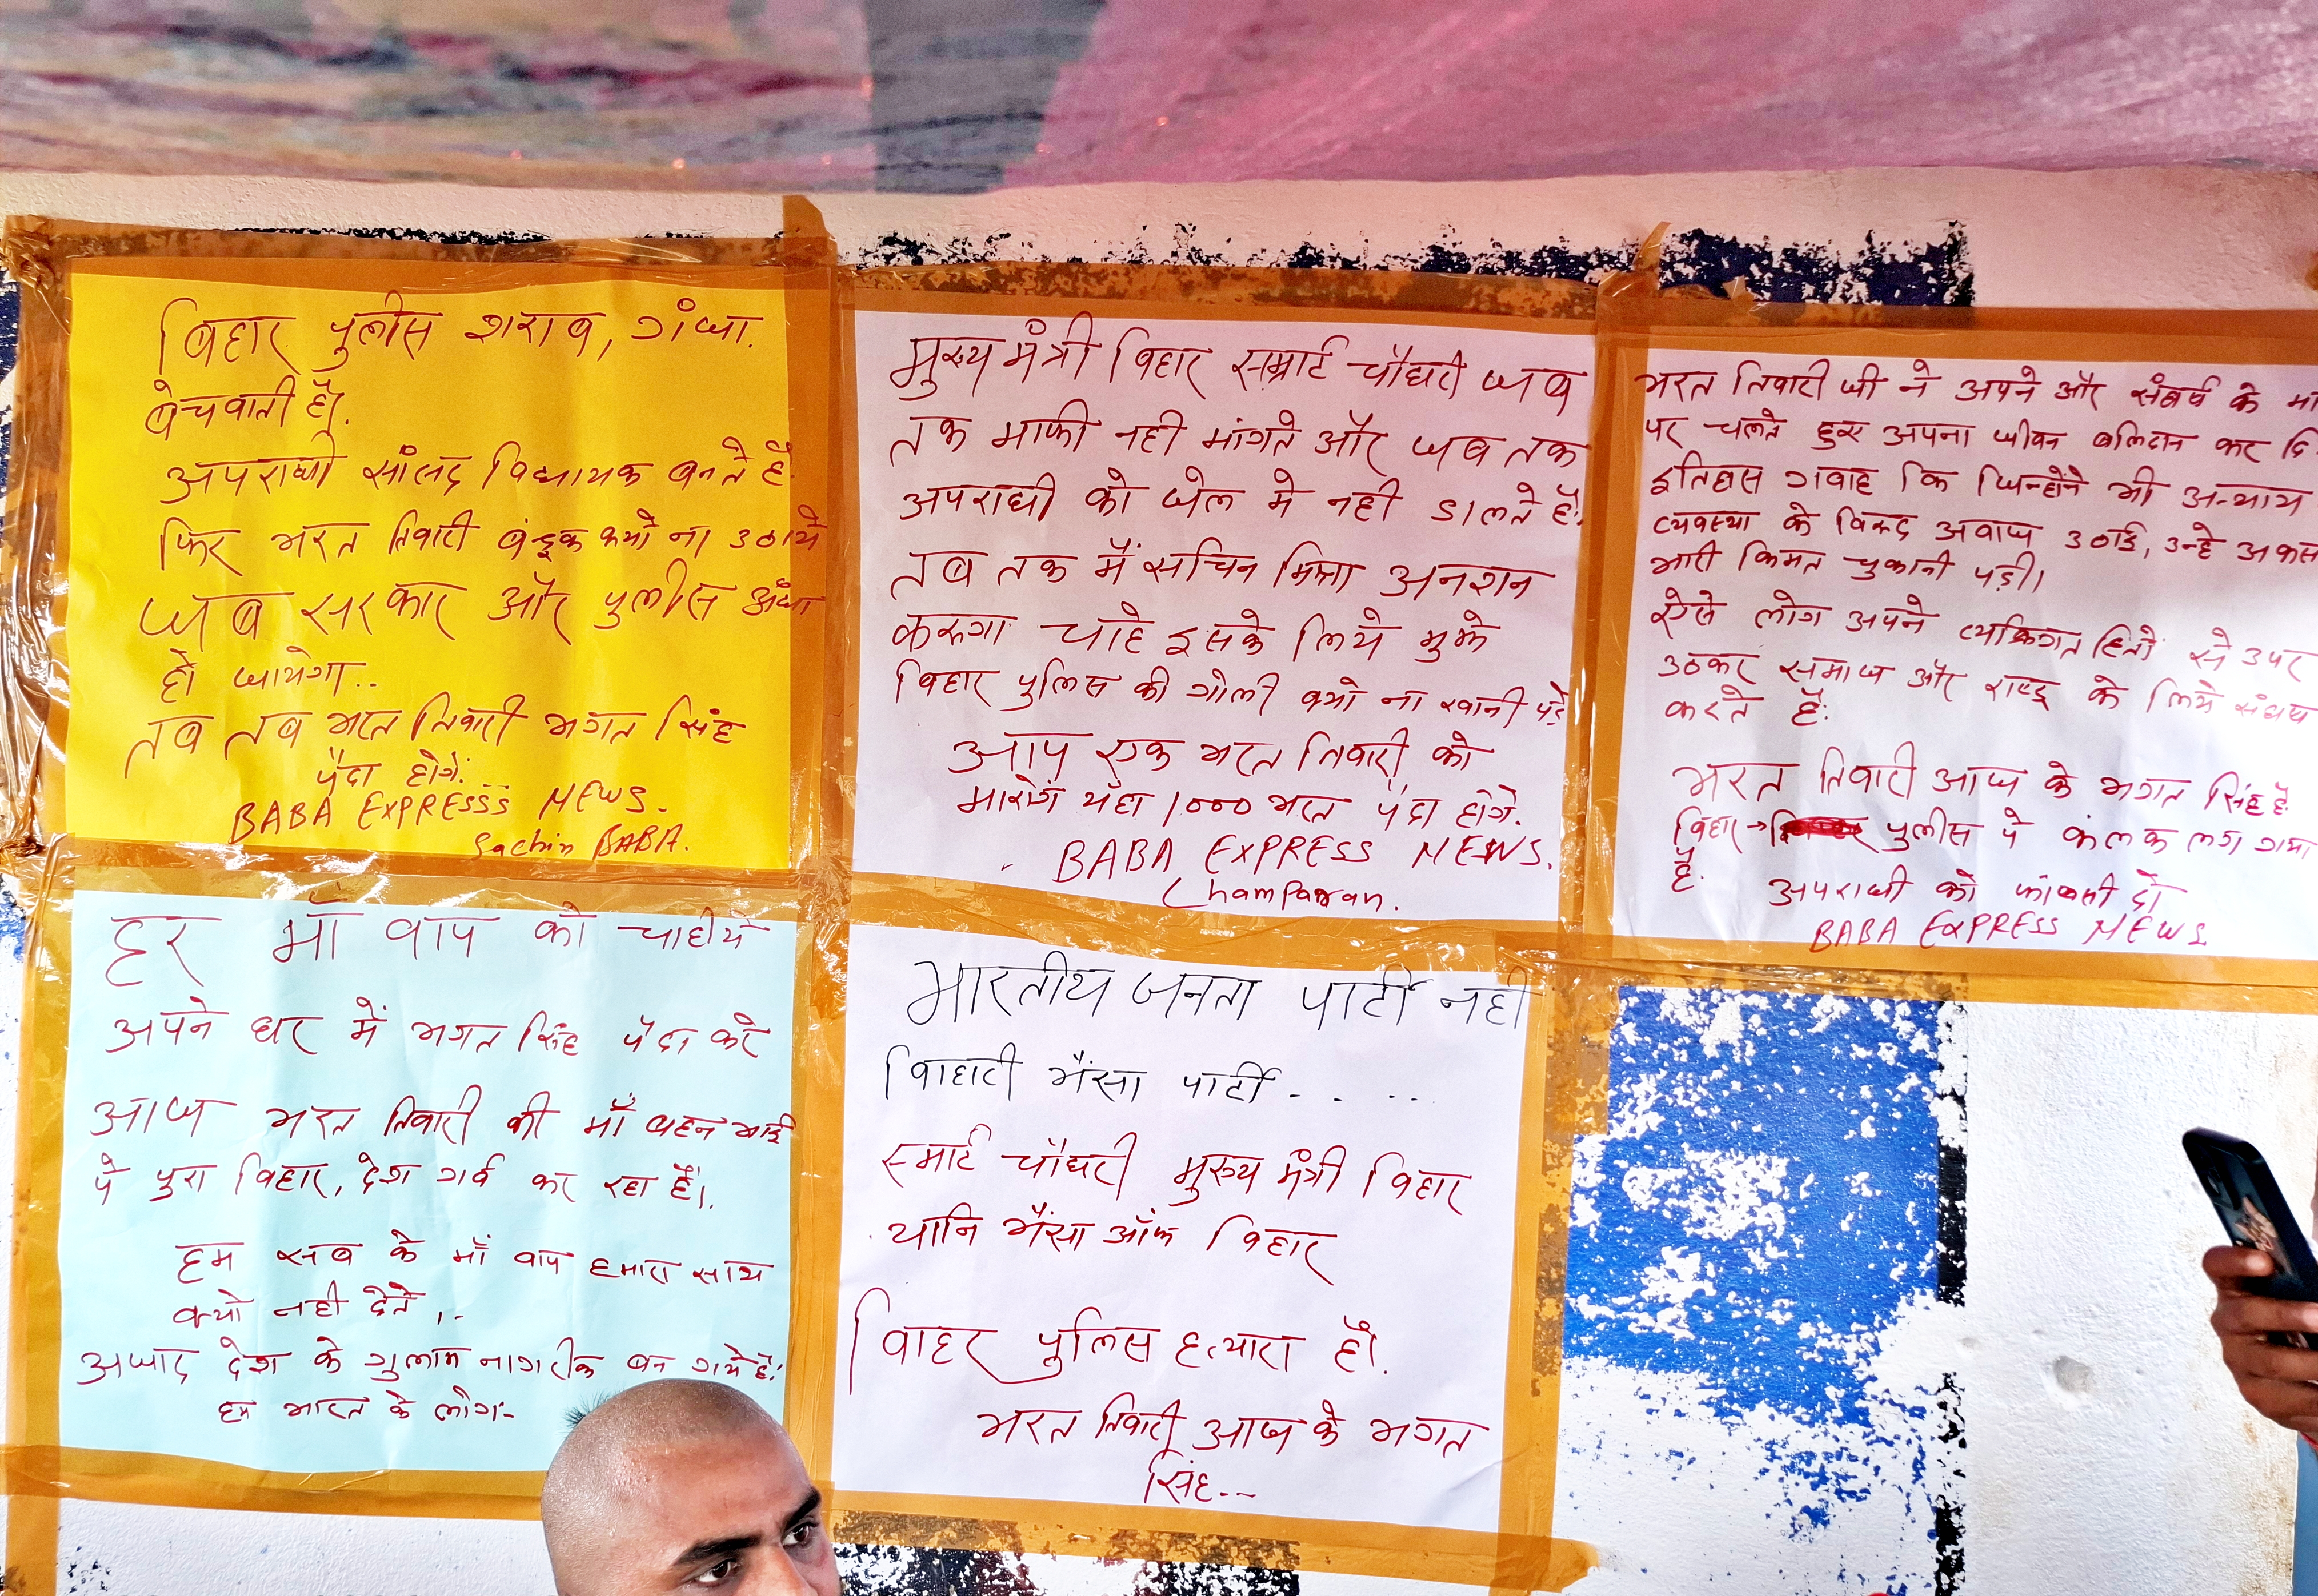 बिहार पुलीस शराब, गंजा.
बेचवाती है।
अपराधी सांसद विधायक बनते है.
फिर भरत तिवारी बंदूक क्यो ना उठाये
जब सरकार और पुलीस अंधा
हो जायेगा..
तब तब भरत तिवारी भगत सिंह
पैदा होगें.
BABA EXPRESSS NEWS.
Sachin BABA.
मुख्य मंत्री बिहार सम्राट चौधरी जब
तक माफी नही मांगते और जब तक
अपराधी को जेल मे नही डालते है.
तब तक मैं सचिन मिश्रा अनशन
करूगा चाहे इसके लिये मुझे
बिहार पुलिस की गोली क्यो ना खानी पड़े
आप एक भरत तिवारी को
मारोगे यँहा 1000 भरत पैदा होगे.
BABA EXPRESS NEWS.
Champaran.
भरत तिवारी जी ने अपने और संघर्ष के मा
पर चलते हुए अपना जीवन बलिदान कर दि
इतिहास गवाह कि जिन्होंने भी अन्याय
व्यवस्था के विरूद अवाज उठाई, उन्हे अकस
भारी किमत चुकानी पड़ी।
ऐसे लोग अपने व्यक्तिगत हितों से उपर
उठकर समाज और राष्ट्र के लिये संघर्ष
करते है.
भरत तिवारी आज के भगत सिंह है.
बिहार → पुलीस पे कंलक लग गया
है.
अपराधी को फांसी दो
BABA EXPRESS NEWS.
हर माँ वाप को चाहीये
अपने घर में भगत सिंह पैदा करे
आज भरत तिवारी की माँ बहन भाई
पे पुरा बिहार, देश गर्व कर रहा है।.
हम सब के माँ वाप हमारा साथ
क्यो नही देते।..
अजाद देश के गुलाम नागरीक बन गये है.
हम भारत के लोग-
भारतीय जनता पार्टी नही
विहारी भैंसा पार्टी.....
स्मार्ट चौधरी मुख्य मंत्री विहार
यानि भैंसा ऑफ विहार
विाहर पुलिस हत्यारा है।.
भरत तिवारी आज के भगत
सिंह...